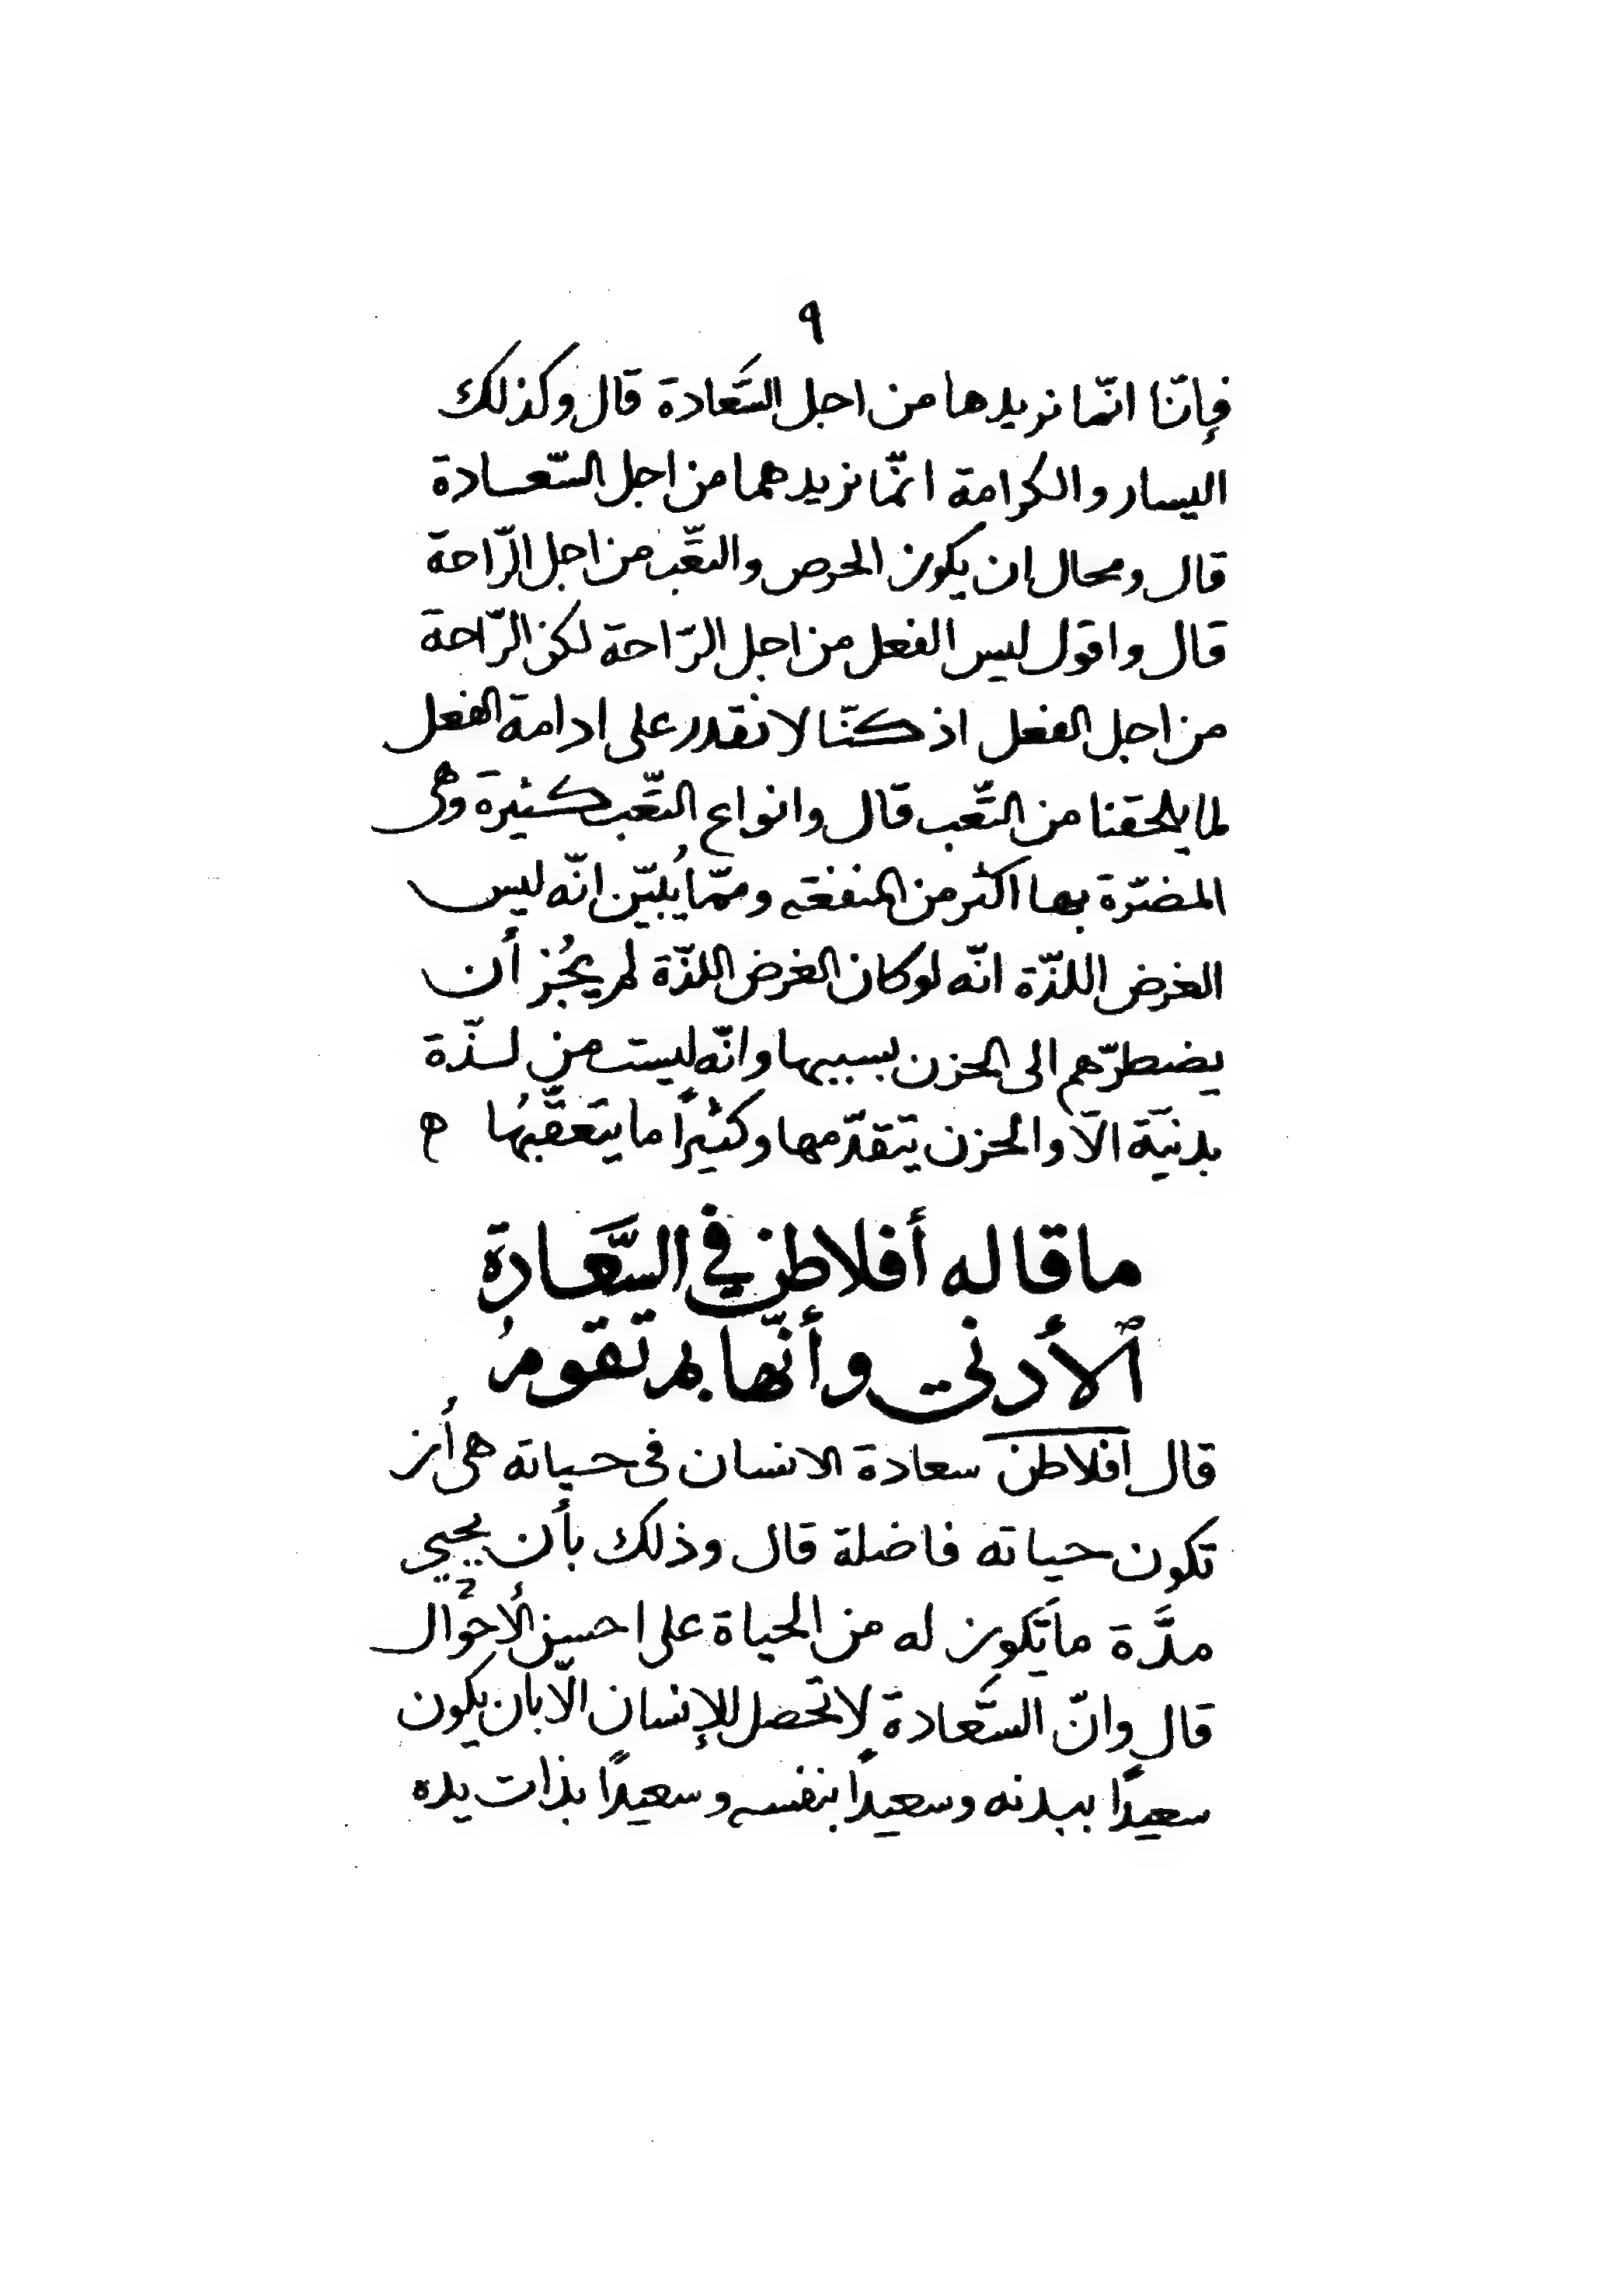 ٩
فإنّنا انّما نريدها من اجل السَّعادة قال وكذلك
اليسار والكرامة انّما نريدهما من اجل السّعادة
قال ومحال ان يكون الحرص والتَّعب من اجل الرّاحة
قال واقول ليس الفعل من اجل الرّاحة لكن الرّاحة
من اجل الفعل اذ كنّا لا نقدر على ادامة الفعل
لما يلحقنا من التَّعب قال وانواع التَّعب كثيرة وهى
المضرّة بها اكثر من المنفعة وممّا يُبيّن انّه ليس
الغرض اللذّة انّه لو كان الغرض اللذّة لم يجُز أن
يضطرّهم الى الحزن بسببها وانّه ليست من لذّة
بدنيّة الّا والحزن يتقدّمها وكثيرًا ما يتعقّبُها ه
ما قاله أفلاطن في السَّعادة
الأدنى وأنّها بم تقومُ
قال افلاطن سعادة الانسان فى حياته هى أن
تكون حياته فاضلة قال وذلك بأن يحيي
مدَّة ما يكون له من الحياة على احسن الأحوال
قال وانّ السَّعادة لا تحصل للإنسان الّا بان يكون
سعيدًا ببدنه وسعيدًا بنفسه وسعيدًا بذات يده